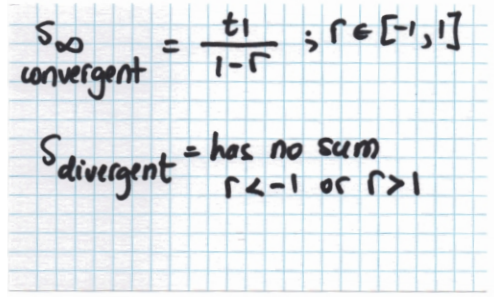 S∞ convergent = t1/(1-r) ; r ∈ [-1,1]
S divergent = has no sum
r < -1 or r > 1